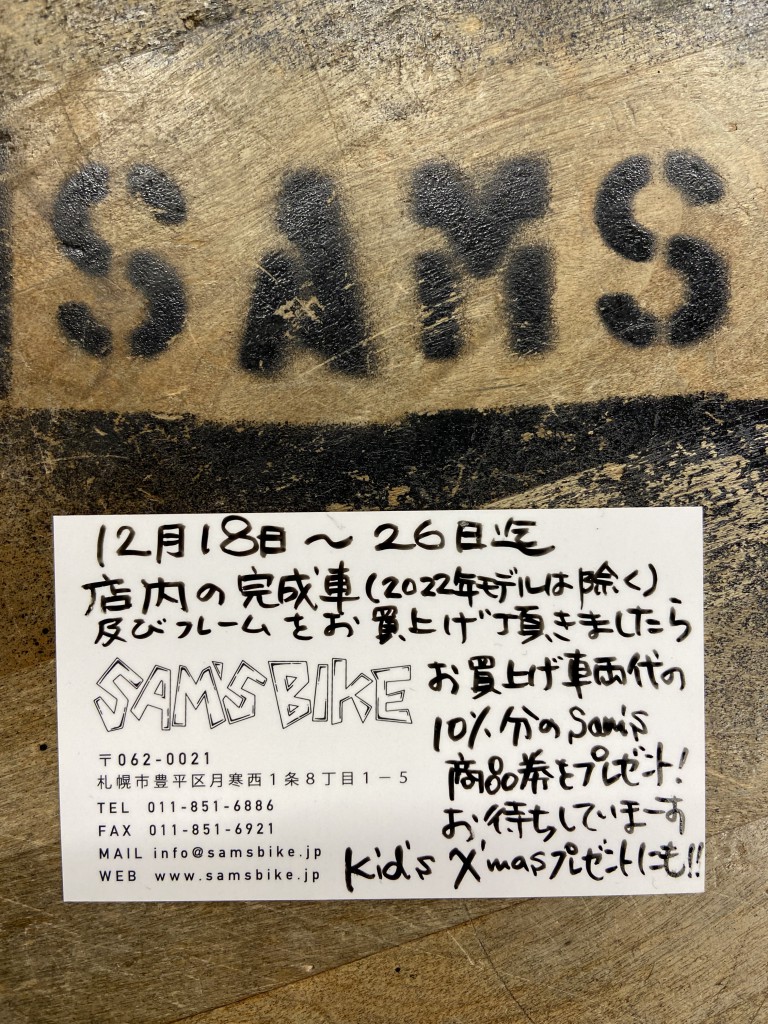 SAMS
12月18日～26日迄
店内の完成車(2022年モデルは除く)、
及びフレームをお買上げ頂きましたら
お買上げ車両代の
10%分のSam's
商品券をプレゼント!
お待ちしていまーす
Kid's X'masプレゼントにも!!
SAM'S BIKE
〒062-0021
札幌市豊平区月寒西1条8丁目1-5
TEL 011-851-6886
FAX 011-851-6921
MAIL info@samsbike.jp
WEB www.samsbike.jp